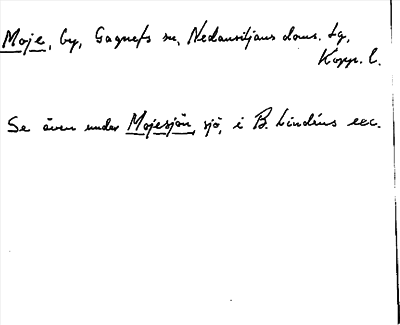 Moje, by, Gagnefs sn, Nedansiljans doms. tg,
Kopp. l.
Se även under Mojesjön, sjö, i B. Lindéns exc.